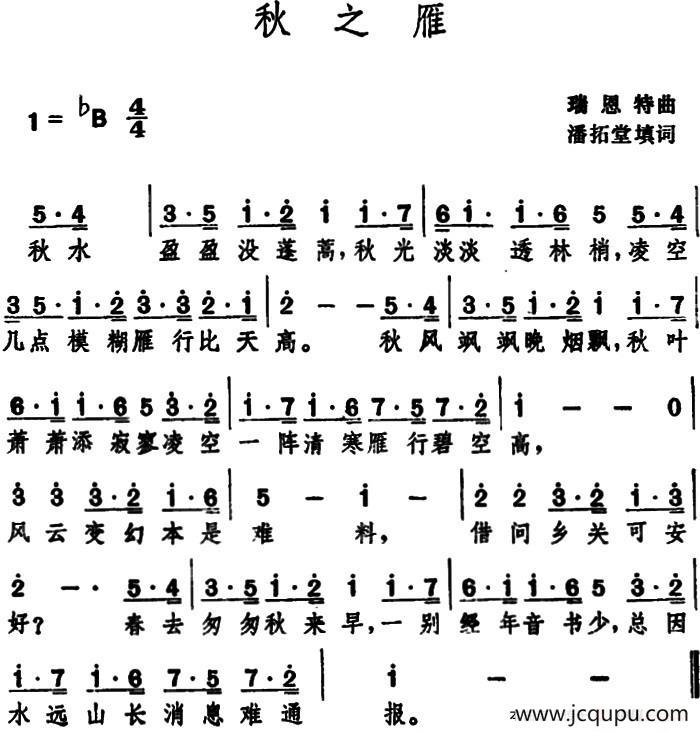 秋之雁
1=♭B 4/4
瑞恩特曲
潘拓堂填词
5·4 | 3·5 i·2 i i·7 | 6 i· i·6 5 5·4 |
秋水 盈盈没蓬蒿,秋光淡淡 透林梢,凌空
3 5· i·2 3·3 2·i | 2 - - 5·4 | 3·5 i·2 i i·7 |
几点模糊雁行比天高。 秋风飒飒晚烟飘,秋叶
6·i i·6 5 3·2 | i·7 i·6 7·5 7·2 | i - - 0
萧萧添寂寥凌空一阵清寒雁行碧空高,
3 3 3·2 i·6 | 5 - i - | 2 2 3·2 i·3 |
风云变幻本是难 料, 借问乡关可安
2 - · 5·4 | 3·5 i·2 i i·7 | 6·i i·6 5 3·2 |
好? 春去匆匆秋来早,一别经年音书少,总因
i·7 i·6 7·5 7·2 | i - - ‖
水远山长消息难通 报。
www.jcqupu.com